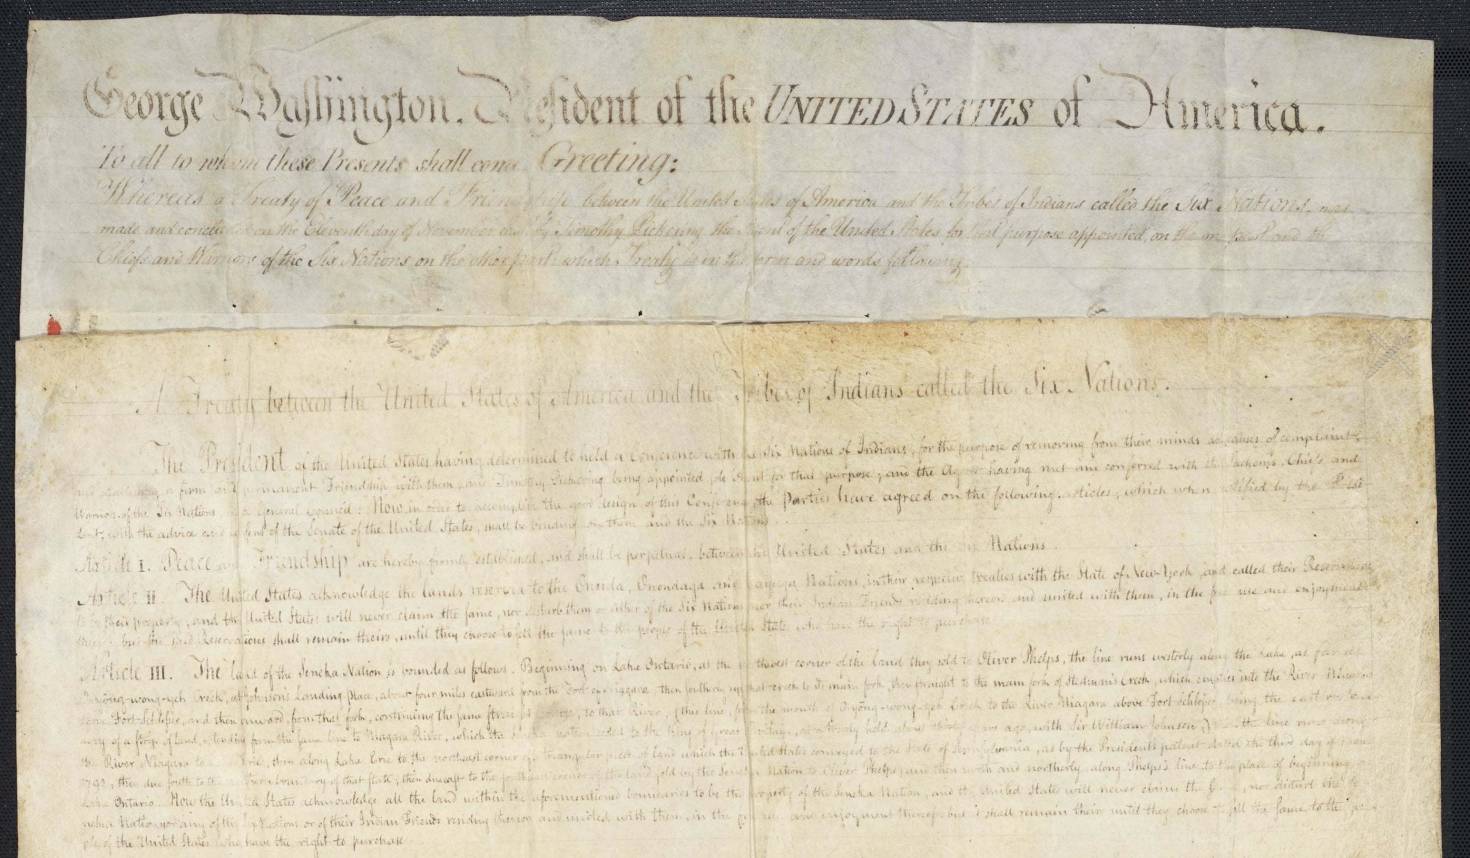 George Washington, President of the UNITED STATES of America.
To all to whom these Presents shall come Greeting:
Whereas a Treaty of Peace and Friendship between the United States of America and the Tribes of Indians called the Six Nations, was
made and concluded on the Eleventh day of November last by Timothy Pickering the Agent of the United States for that purpose appointed, on the one part and the
Chiefs and Warriors of the Six Nations on the other part: which Treaty is in the form and words following.
A Treaty between the United States of America and the Tribes of Indians called the Six Nations.
The President of the United States having determined to hold a Conference with the Six Nations of Indians, for the purpose of removing from their minds all causes of complaint,
and establishing a firm and permanent Friendship with them; and Timothy Pickering being appointed sole Agent for that purpose; and the Agent having met and conferred with the Sachems, Chiefs and
Warriors of the Six Nations in a General Council: Now in order to accomplish the good design of this Conference, the Parties have agreed on the following articles, which when ratified by the
with the advice and consent of the Senate of the United States, shall be binding on them and the Six Nations.
Article I. Peace and Friendship are hereby firmly established, and shall be perpetual, between the United States and the Six Nations.
Article II. The United States acknowledge the lands reserved to the Oneida, Onondaga and Cayuga Nations, in their respective treaties with the State of New-York, and called their Reservations,
to be their property; and the United States will never claim the same, nor disturb them or either of the Six Nations, nor their Indian Friends residing thereon and united with them, in the free use and enjoyment
thereof: but the said Reservations shall remain theirs, until they choose to sell the same to the people of the United States, who have the right to purchase.
Article III. The land of the Seneka Nation is bounded as follows. Beginning on Lake Ontario, at the north-west corner of the land they sold to Oliver Phelps, the line runs westerly along the Lake, as far as
O-yong-wong-yeh Creek, at Johnson's Landing place, about four miles eastward from the Fort of Niagara; then southerly up that creek to its main fork, then straight to the main fork of Stedman's Creek, which empties into the River Niagara
above Fort Schlosser, and then onward, from that fork, continuing the same straight course, to that River; (this line, from the mouth of O-yong-wong-yeh Creek to the River Niagara above Fort Schlosser, being the eastern
of a strip of land, extending from the same line to Niagara River, which the Seneka nation ceded to the King of Great Britain, at a treaty held about thirty years ago, with Sir William Johnson;) then the line runs along
the River Niagara to Lake Erie; then along Lake Erie to the northeast corner of a triangular piece of land which the United States conveyed to the State of Pennsylvania, as by the President's patent dated the third day of March
1792; then due south to the northern boundary of that state; then due east to the southwest corner of the land sold by the Seneka Nation to Oliver Phelps; and then north and northerly, along Phelps's line, to the place of beginning on
Lake Ontario. Now the United States acknowledge all the land within the aforementioned boundaries to be the property of the Seneka Nation; and the United States will never claim the same, nor disturb the
Seneka Nation, nor any of the Six Nations or of their Indian Friends residing thereon and united with them, in the free use and enjoyment thereof: but it shall remain theirs until they choose to sell the same to the
of the United States who have the right to purchase.